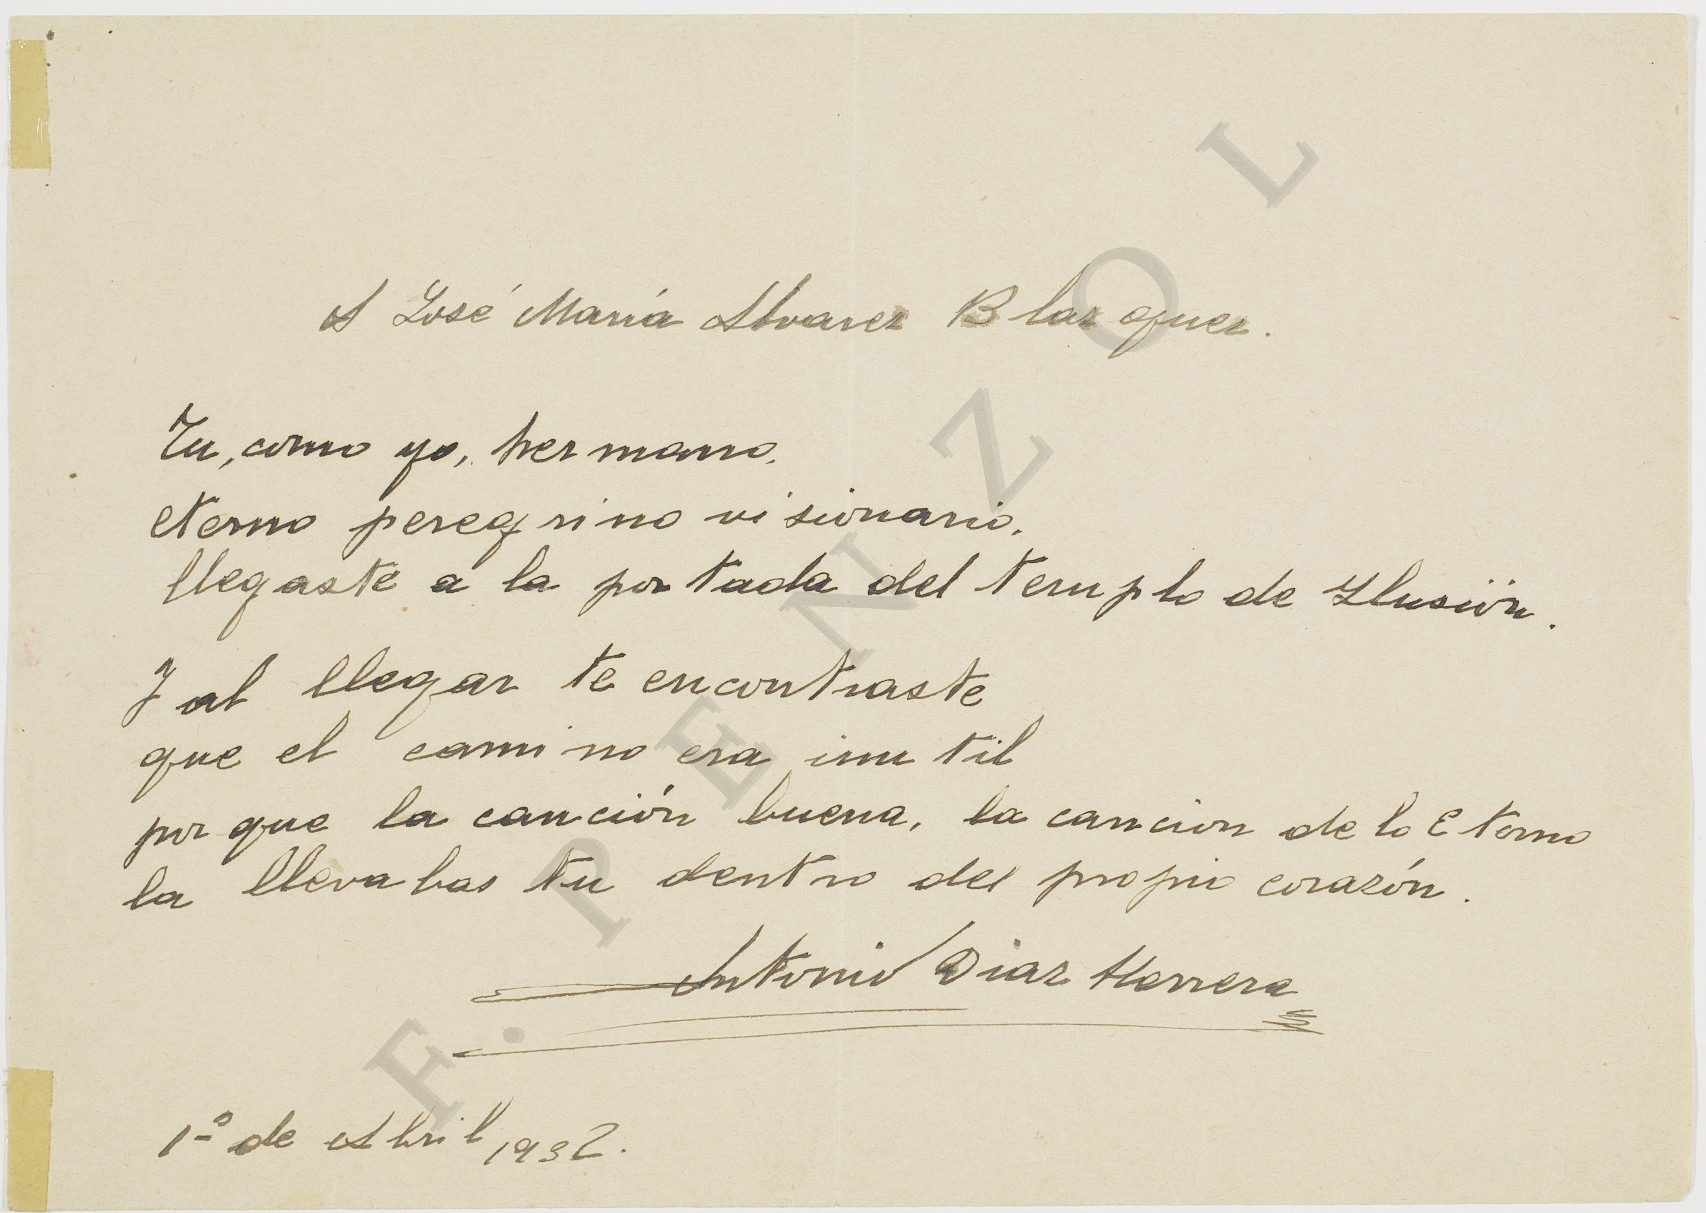 A José María Alvarez Blazquez.
Tu, como yo, hermano,
eterno peregrino visionario,
llegaste a la portada del templo de Ilusión.
Y al llegar te encontraste
que el camino era inutil
porque la canción buena, la cancion de lo Eterno
la llevabas tu dentro del propio corazón.
Antonio Diaz Herrera
1º de Abril 1932.
F. PENZOL